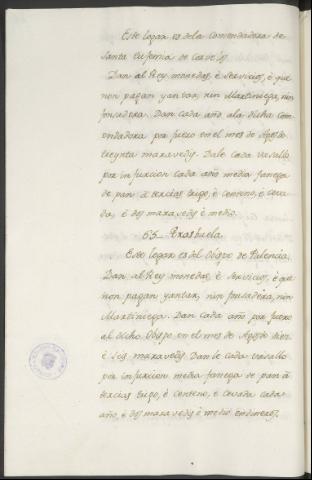 Este logar es dela Comendadora de
Santa Eufemia de
Dan al Rey monedas, è servicios, è que
non pagan yantar, nin Martiniega, nin
fonsadera. Dan cada año ala dicha Com-
endadora por fuero en el mes de Agosto
treynta maravedis. Dale cada vasallo
por infurcion cada año media fanega
de pan à tercias trigo, è centeno, è ceva
da, è dos maravedis è medio.
65_ Exashuela.
Este logar es del Obispo de Palencia.
Dan al Rey monedas, è servicios, è que
non pagan yantar, nin fonsadera, nin
Martiniega. Dan cada año por fuero
al dicho Obispo en el mes de Agosto diez
è seis maravedis. Danle cada vasallo
por infurcion media fanega de pan à
tercias trigo, è centeno, è cevada cada
año, è dos maravedis è medio en dineros.